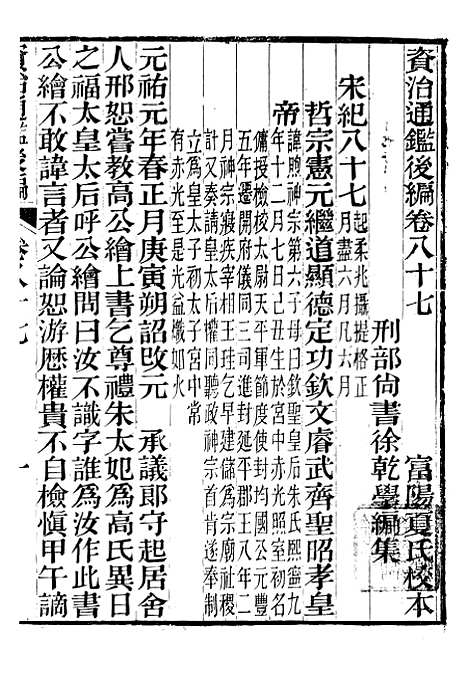 資治通鑑後編卷八十七
富陽夏氏校本
刑部尚書徐乾學編集
宋紀八十七起柔兆攝提格正月盡六月凡六月
哲宗憲元繼道顯德定功欽文睿武齊聖昭孝皇
帝諱煦神宗第六子母曰欽聖皇后朱氏熙寧九
年十二月七日己丑生於宮中赤光照室初名
傭授檢校太尉天平軍節度使封均國公元豐
五年遷開府儀同三司進封延平郡王八年二
月神宗寢疾宰相王珪乞早建儲為宗廟社稷
計又奏請皇太后權同聽政神宗首肯遂奉制
立為皇太子初太子宮中常
有赤光至是光益熾如火
元祐元年春正月庚寅朔詔改元　承議郎守起居舍
人邢恕嘗教高公繪上書乞尊禮朱太妃為高氏異日
之福太皇太后呼公繪問曰汝不識字誰為汝作此書
公繪不敢諱言者又論恕游歷權貴不自檢愼甲午謫
資治通鑑後編
卷八十七
一